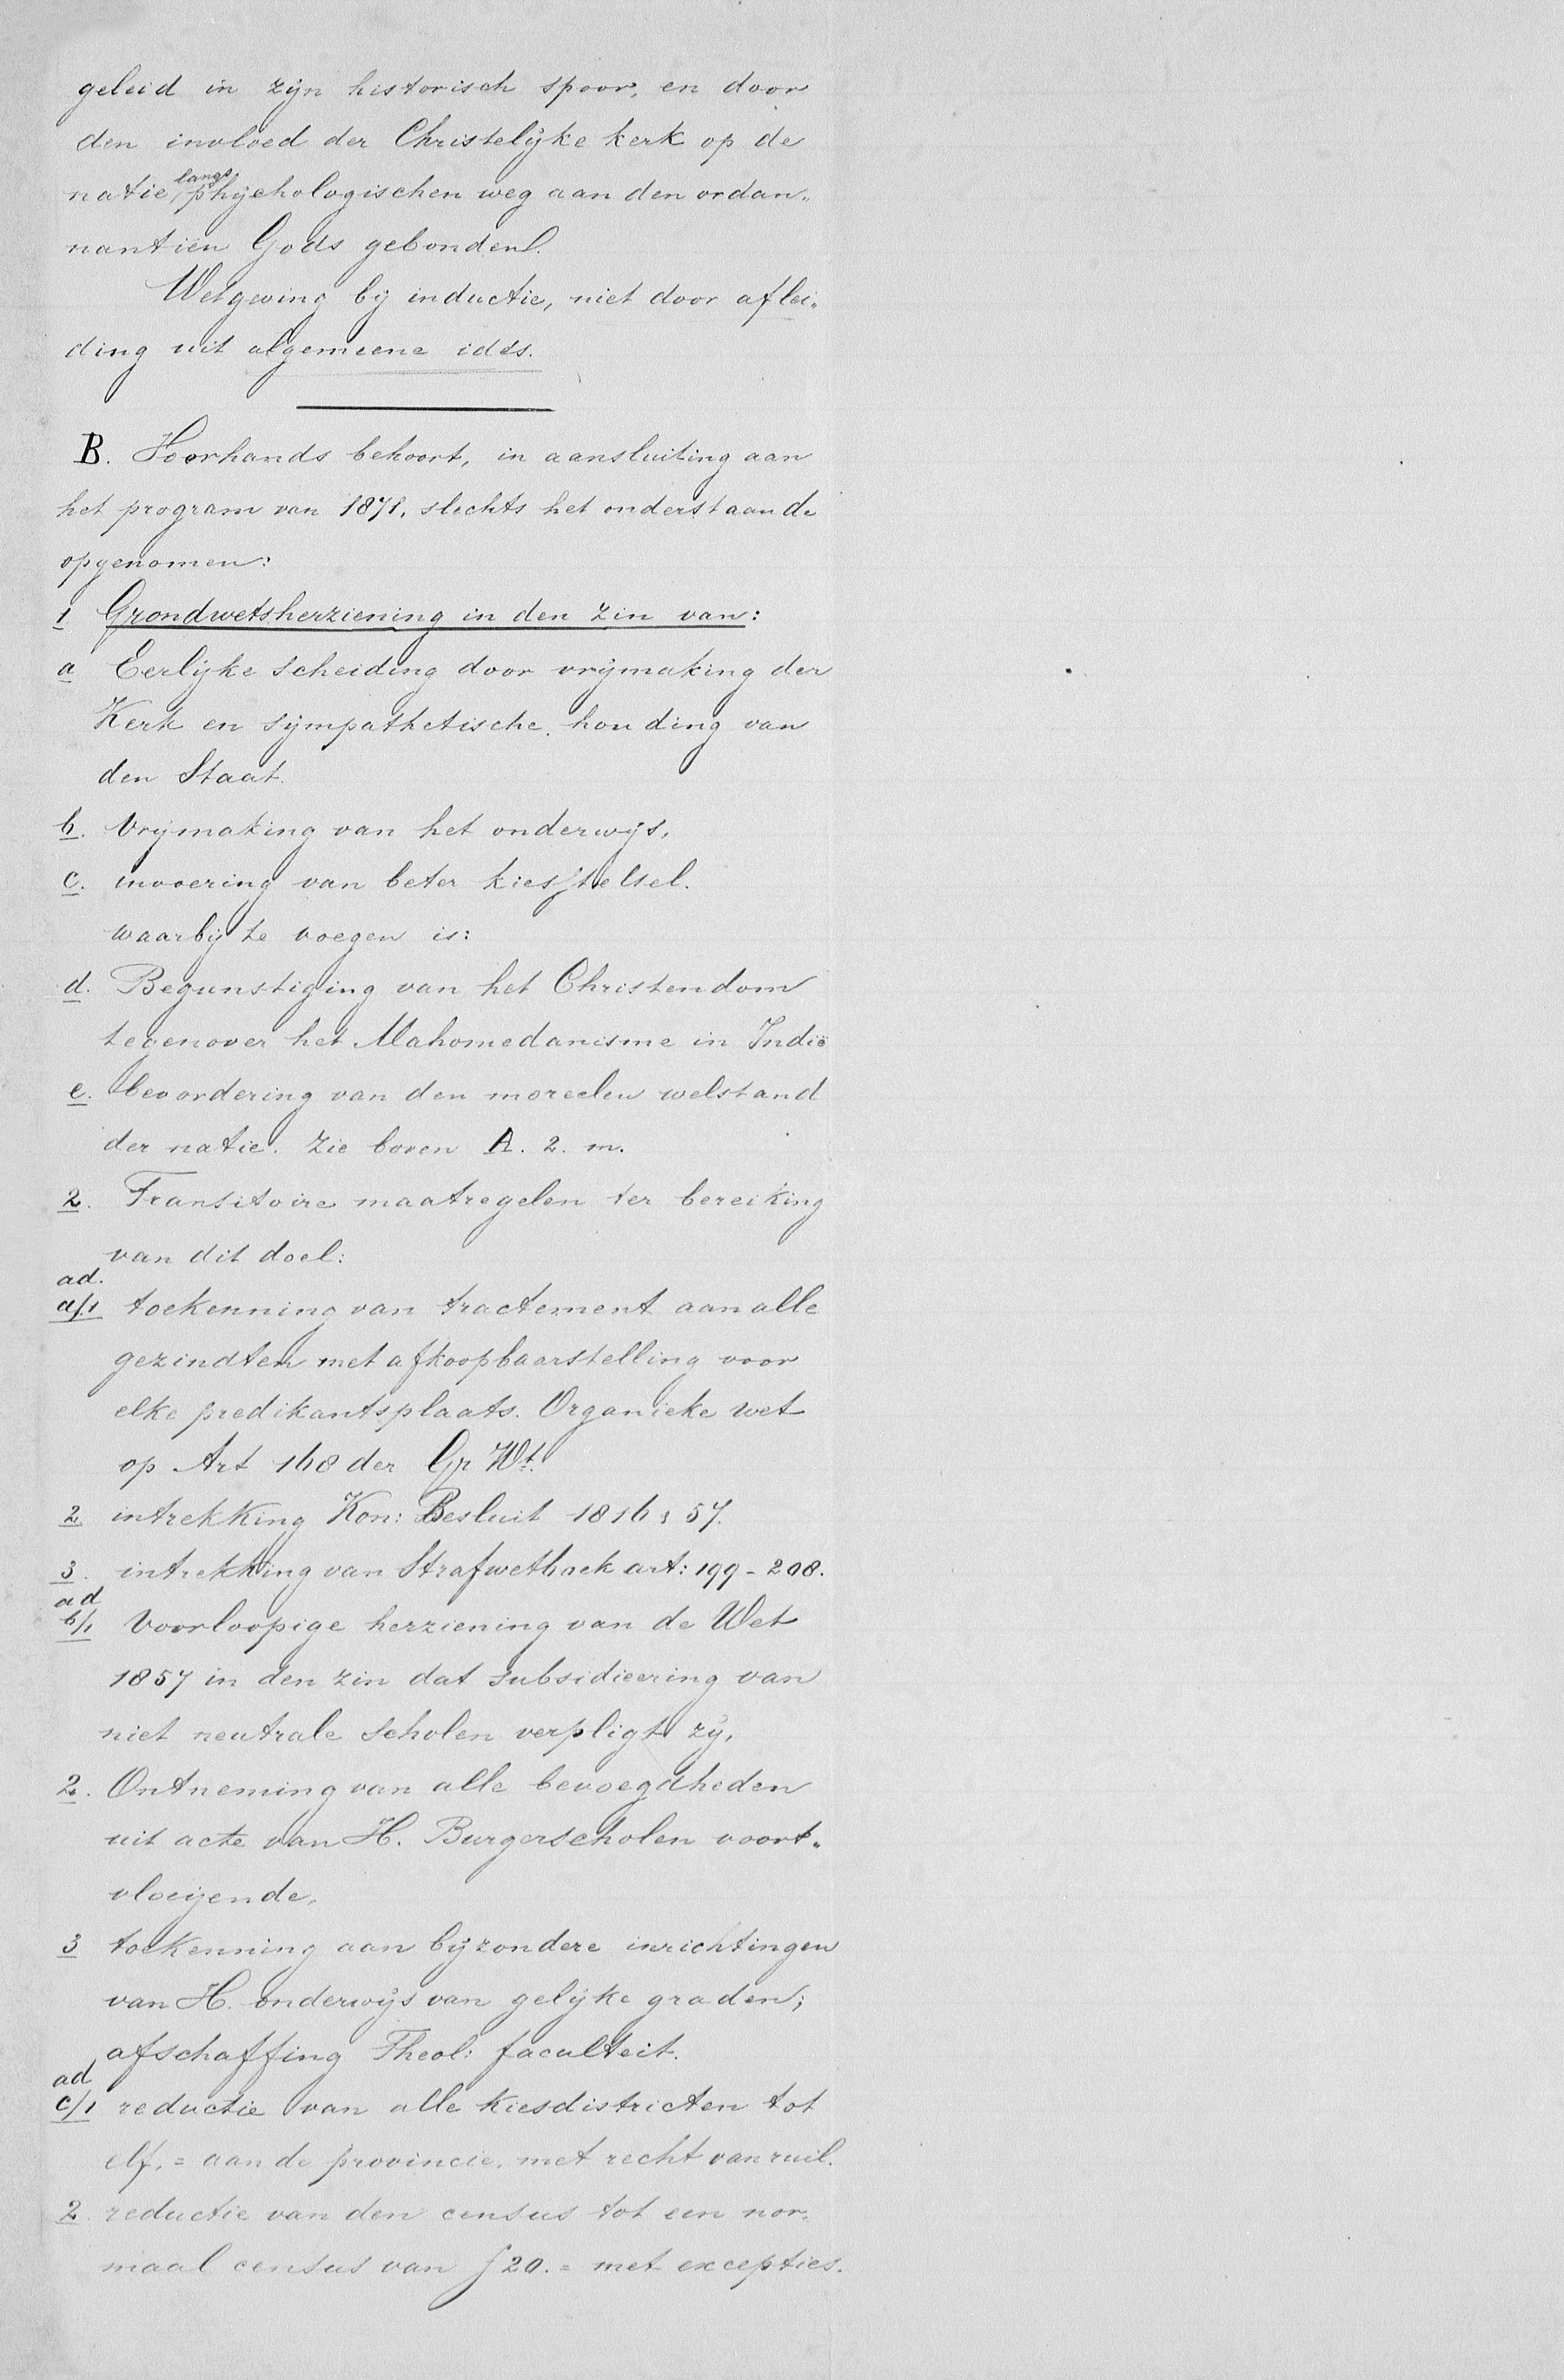 geleid in zijn historisch spoor, en door
den invloed der Christelijke kerk op de
natie, langs phychologischen weg aan den ordan„
nantiën Gods gebonden.
Wetgeving bij inductie, niet door aflei„
ding uit algemeene idés.
B. Voorhands behoort, in aansluiting aan
het program van 1871, slechts het onderstaande
opgenomen:
1 Grondwetsherziening in den zin van:
a Eerlijke scheiding door vrijmaking der
Kerk en sympathetische houding van
den Staat.
b. Vrijmaking van het onderwijs,
c. invoering van beter kiesstelsel.
waarbij te voegen is:
d. Begunstiging van het Christendom
tegenover het Mahomedanisme in Indië
e. bevordering van den moreelen welstand
der natie. Zie boven A. 2. m.
2. Transitoire maatregelen ter bereiking
van dit doel:
ad.
a/1 toekenning van tractement aan alle
gezindten met afkoopbaarstelling voor
elke predikantsplaats. Organieke wet
op Art 168 der Gr Wt.
2 intrekking Kon: Besluit 1816 & 57.
3. intrekking van Strafwetboek art: 199-208.
ad
b/1 Voorloopige herziening van de Wet
1857 in den zin dat subsidieering van
niet neutrale scholen verpligt zij,
2. Ontneming van alle bevoegdheden
uit acte van H. Burgerscholen voort„
vloeijende,
3 toekenning aan bijzondere inrichtingen
van H. onderwijs van gelijke graden;
afschaffing Theol: faculteit.
ad
c/1 reductie van alle kiesdistricten tot
elf, = aan de provincie, met recht van ruil.
2 reductie van den census tot een nor„
maal census van ƒ 20. = met excepties.